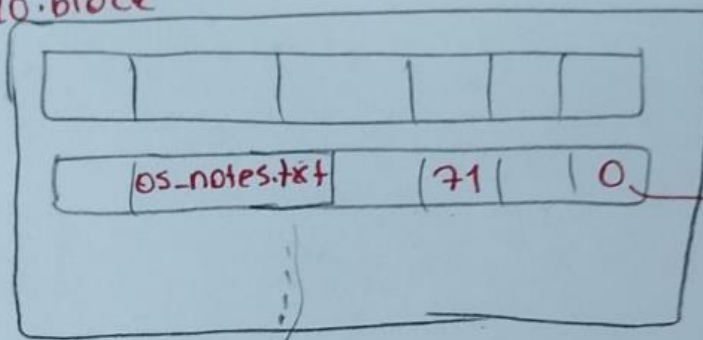 .block
os_notes.txt 71 0